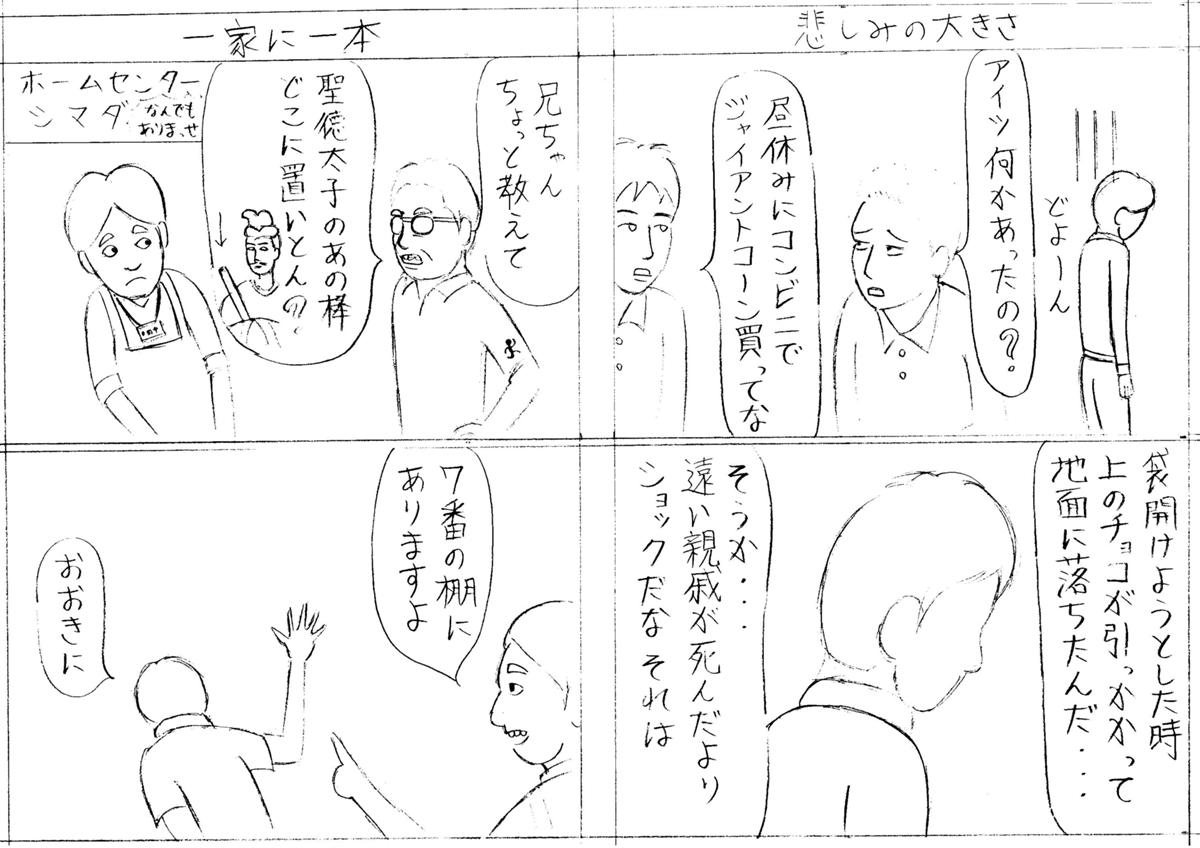 悲しみの大きさ
どよーん
アイツ何かあったの?
昼休みにコンビニで
ジャイアントコーン買ってな
袋開けようとした時
上のチョコが引っかかって
地面に落ちたんだ・・・
そうか・・・
遠い親戚が死んだより
ショックだな それは
一家に一本
ホームセンター
シマダ
なんでも
ありまっせ
兄ちゃん
ちょっと教えて
聖徳太子のあの棒
どこに置いとん?
7番の棚に
ありますよ
おおきに